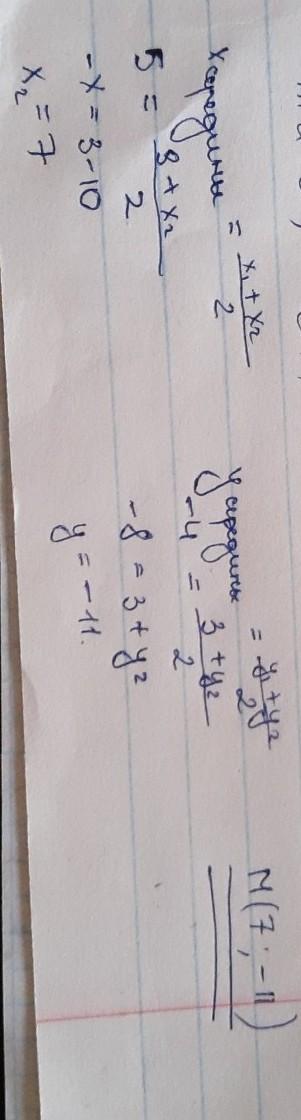 x середины = x₁ + x₂ / 2
5 = 3 + x₂ / 2
-x = 3-10
x₂ = 7
y середины = y₁ + y₂ / 2
-4 = 3 + y₂ / 2
-8 = 3 + y₂
y = -11.
M(7; -11)